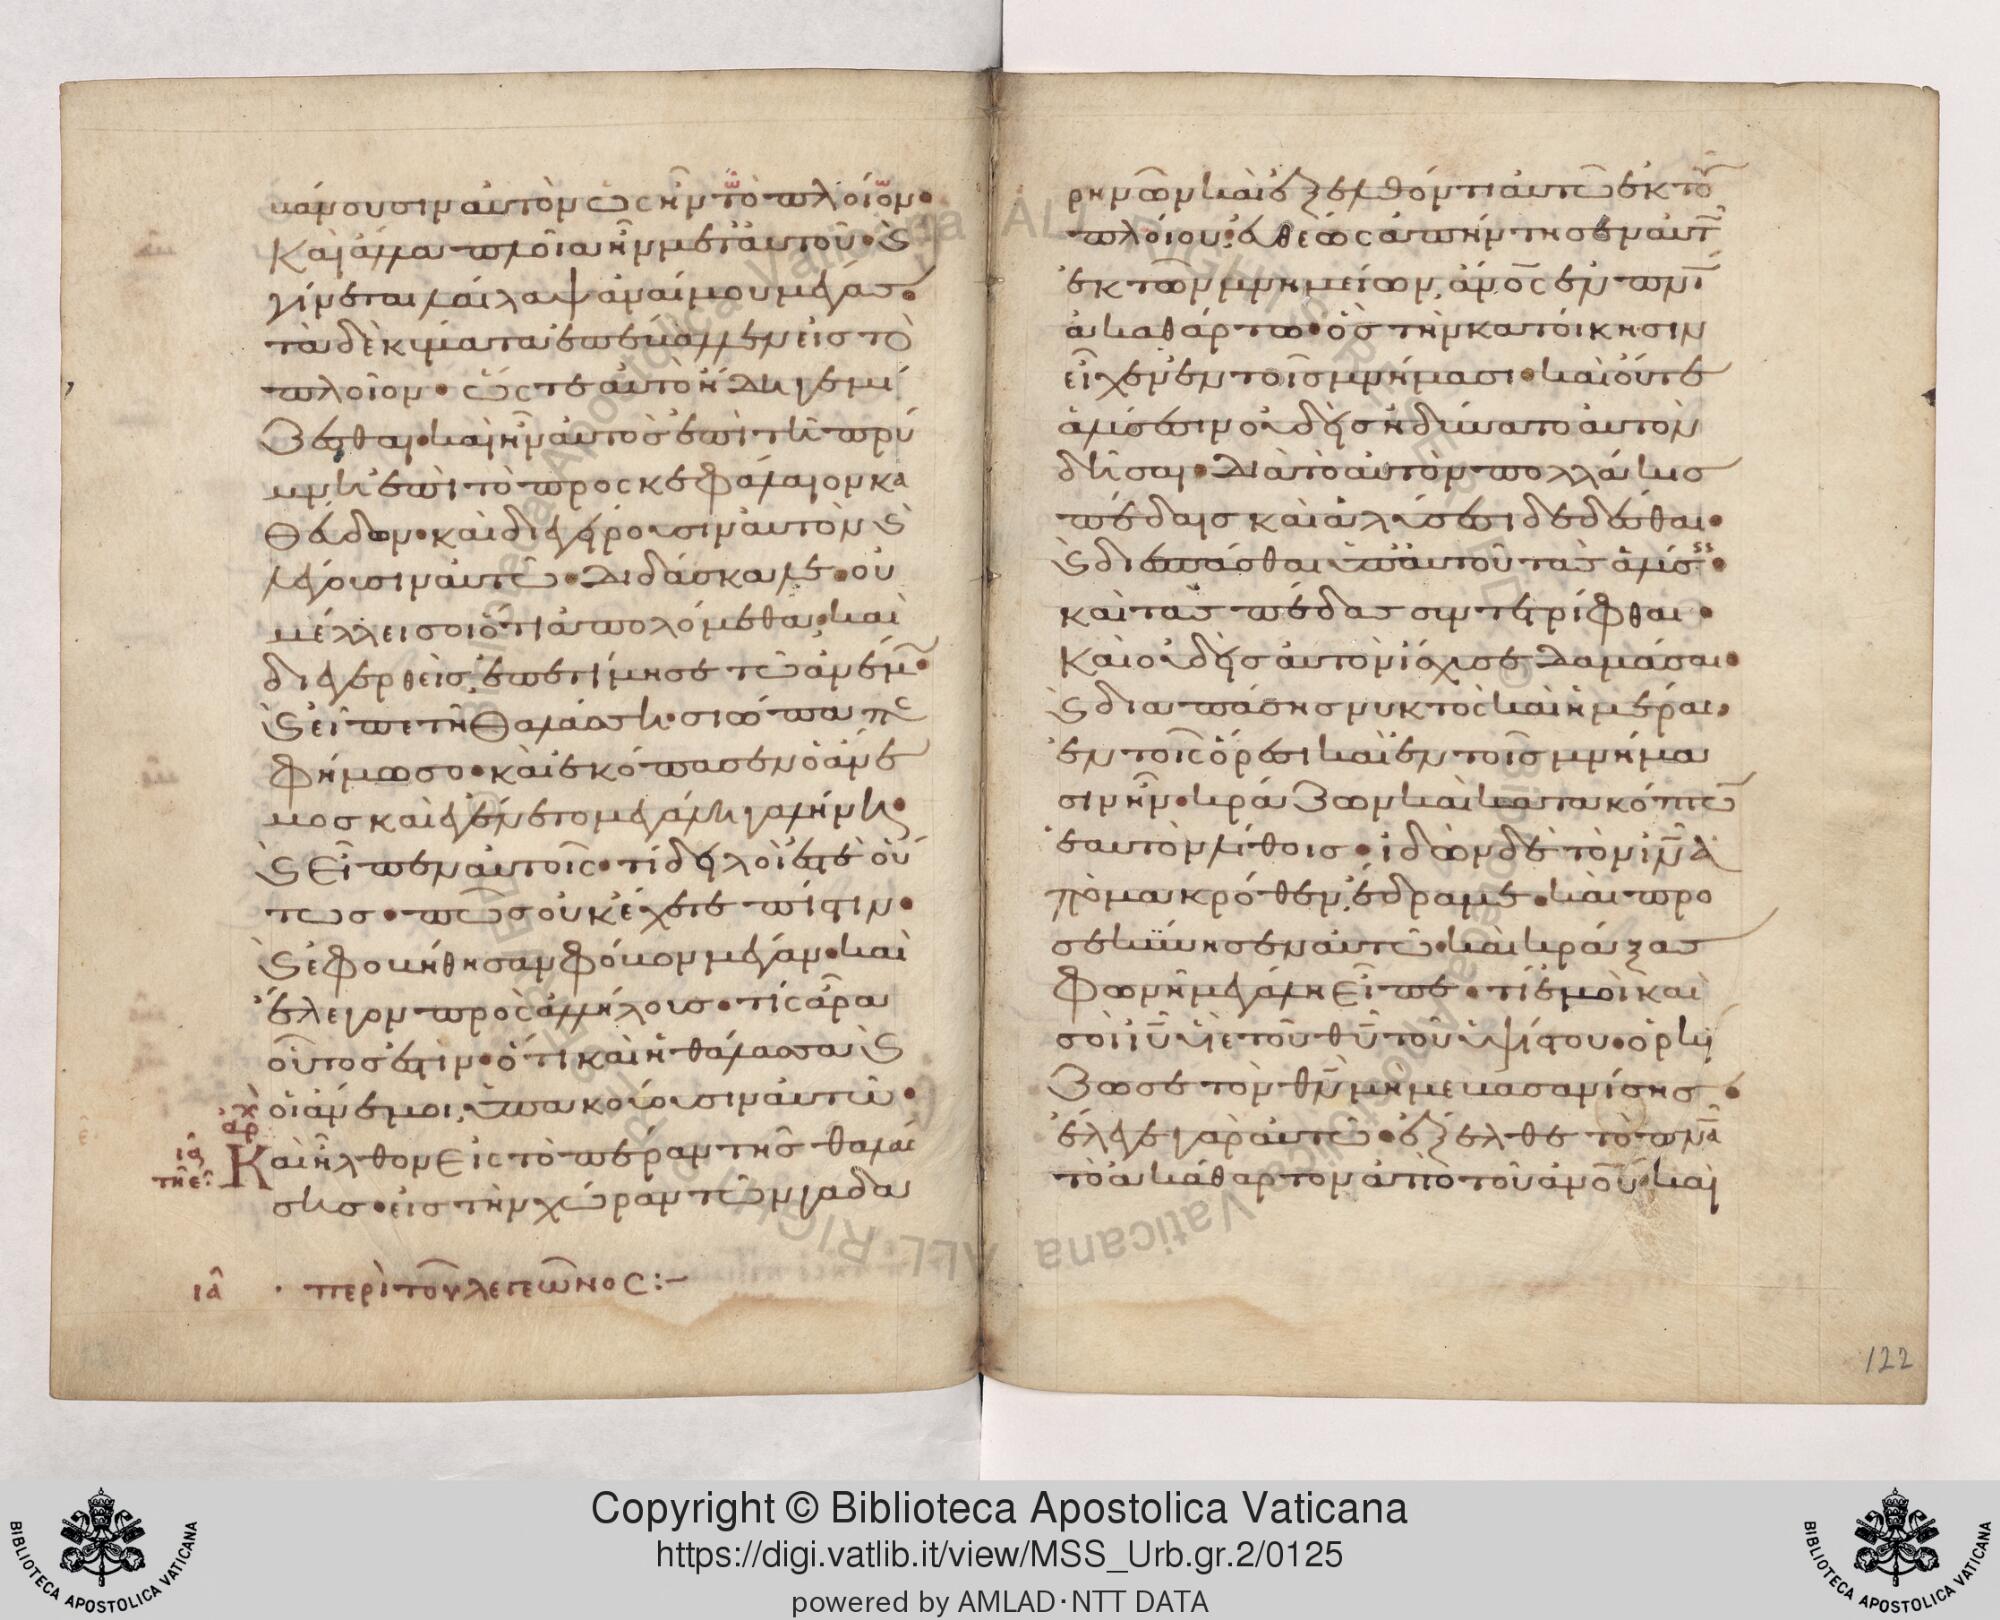 βάνουσιν αὐτὸν ὡς ἦν τῶ πλοίω·
καὶ ἄλλα πλοῖα ἦν μετ' αὐτοῦ· Ϗ
γίνεται λαῖλαψ ἀνέμου μεγάλη·
τὰ δὲ κύματα ἐπέβαλλεν εἰς τὸ
πλοῖον· ὥστε αὐτὸ ἤδη γεμί
ζεσθαι· καὶ ἦν αὐτὸς ἐπὶ τῆ πρύ
μνη ἐπὶ τὸ προσκεφάλαιον κα
θεύδων· καὶ διεγείρουσιν αὐτὸν Ϗ
λέγουσιν αὐτῶ· διδάσκαλε· οὐ
μέλλει σοι ὅτι ἀπολόμεθα· καὶ
διεγερθεὶς, ἐπετίμησε τῶ ἀνέμω·
Ϗ εἶπε τῆ θαλάσση· σιώπα πε
φήμωσο· καὶ ἐκόπασεν ὁ ἄνε
μος καὶ ἐγένετο μεγάλη γαλήνη·
Ϗ εἶπεν αὐτοῖς· τί δειλοί ἐστε οὕ
τως· πῶς οὐκ ἔχετε πίστιν·
Ϗ ἐφοβήθησαν φόβον μέγαν· καὶ
ἔλεγον πρὸς ἀλλήλους· τίς ἄρα
οὗτός ἐστιν· ὅτι καὶ ἡ θάλασσα Ϗ
οἱ ἄνεμοι, ὑπακούουσιν αὐτῶ·
ἀρχ
ια
τῆς ε
Καὶ ἦλθον εἰς τὸ πέραν τῆς θαλάσ
σης· εἰς τὴν χώραν τῶν γαδα
ια · περὶ τοῦ λεγεῶνος:–
ρηνῶν καὶ ἐξελθόντι αὐτῶ ἐκ τοῦ
πλοίου· εὐθέως ἀπήντησεν αὐτῶ
ἐκ τῶν μνημείων, ἄνος ἐν πνι
ἀκαθάρτω· ὃς τὴν κατοίκησιν
εἶχεν ἐν τοῖς μνήμασι· καὶ οὔτε
ἁλύσεσιν οὐδεὶς ἠδύνατο αὐτὸν
δῆσαι· διὰ τὸ αὐτὸν πολλάκις
πέδαις καὶ ἁλύσεσι δεδέσθαι·
Ϗ διεσπάσθαι ὑπ' αὐτοῦ τὰς ἁλύσεις·
καὶ τὰς πέδας συντετρίφθαι·
καὶ οὐδεὶς αὐτὸν ἴσχυσε δαμάσαι·
Ϗ διὰ πάσης νυκτὸς καὶ ἡμέρας·
ἐν τοῖς ὄρεσι καὶ ἐν τοῖς μνήμα
σιν ἦν· κράζων καὶ κατακόπτων
ἑαυτὸν λίθοις· ἰδὼν δὲ τὸν ιν ἀ
πὸ μακρόθεν, ἔδραμε· καὶ προ
σεκύνησεν αὐτῶ· καὶ κράξας
φωνῆ μεγάλη εἶπε· τί ἐμοὶ καὶ
σοὶ ιυ υἱὲ τοῦ θυ τοῦ ὑψίστου· ὁρκί
ζω σε τὸν θν μή με βασανίσης·
ἔλεγε γὰρ αὐτῶ· ἔξελθε τὸ πνα
τὸ ἀκάθαρτον ἀπὸ τοῦ ἀνου· καὶ
122
BIBLIOTECA APOSTOLICA VATICANA
Copyright © Biblioteca Apostolica Vaticana
https://digi.vatlib.it/view/MSS_Urb.gr.2/0125
powered by AMLAD·NTT DATA
BIBLIOTECA APOSTOLICA VATICANA